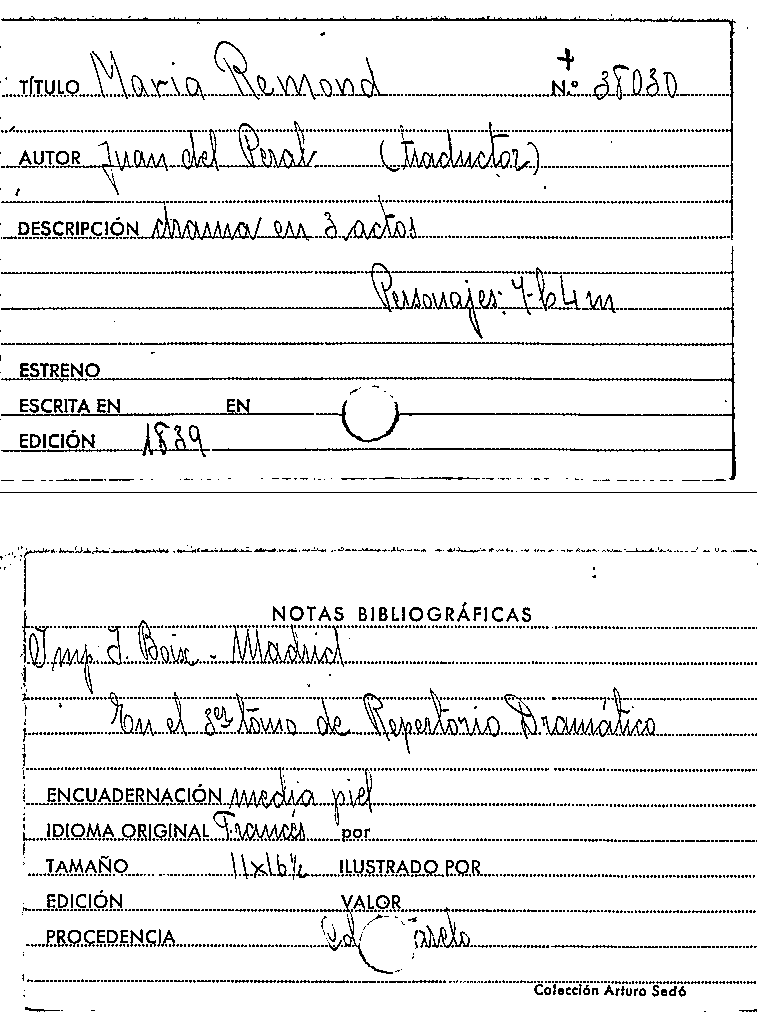 +
TÍTULO María Remond N.º 38030
AUTOR Juan del Peral (traductor)
DESCRIPCIÓN drama en 3 actos
Personajes: 7-h 4 m
ESTRENO
ESCRITA EN EN
EDICIÓN 1839
NOTAS BIBLIOGRÁFICAS
Imp. I. Boix - Madrid
En el 3er tomo de Repertorio Dramático
ENCUADERNACIÓN media piel
IDIOMA ORIGINAL Francés por
TAMAÑO 11x16½ ILUSTRADO POR
EDICIÓN VALOR
PROCEDENCIA
Colección Arturo Sedó